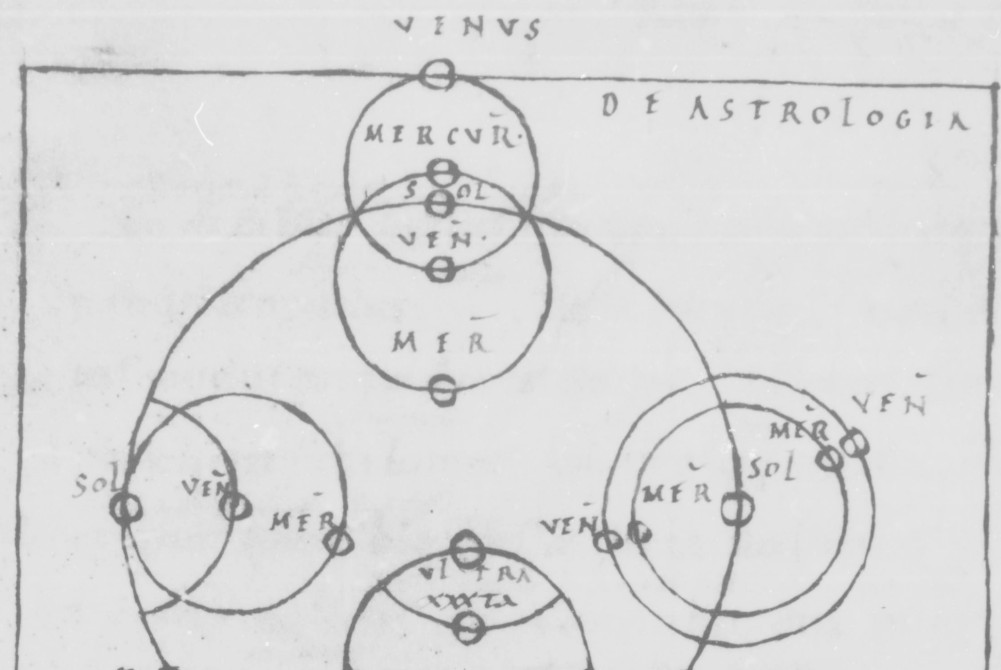 VENVS
DE ASTROLOGIA
MERCVR̄·
SOL
VEN̄·
MER̄
VEN̄
MER̄
SOL
SOL
VEN̄
MER̄
MER̄
VEN̄
VLTRA
XXXTA